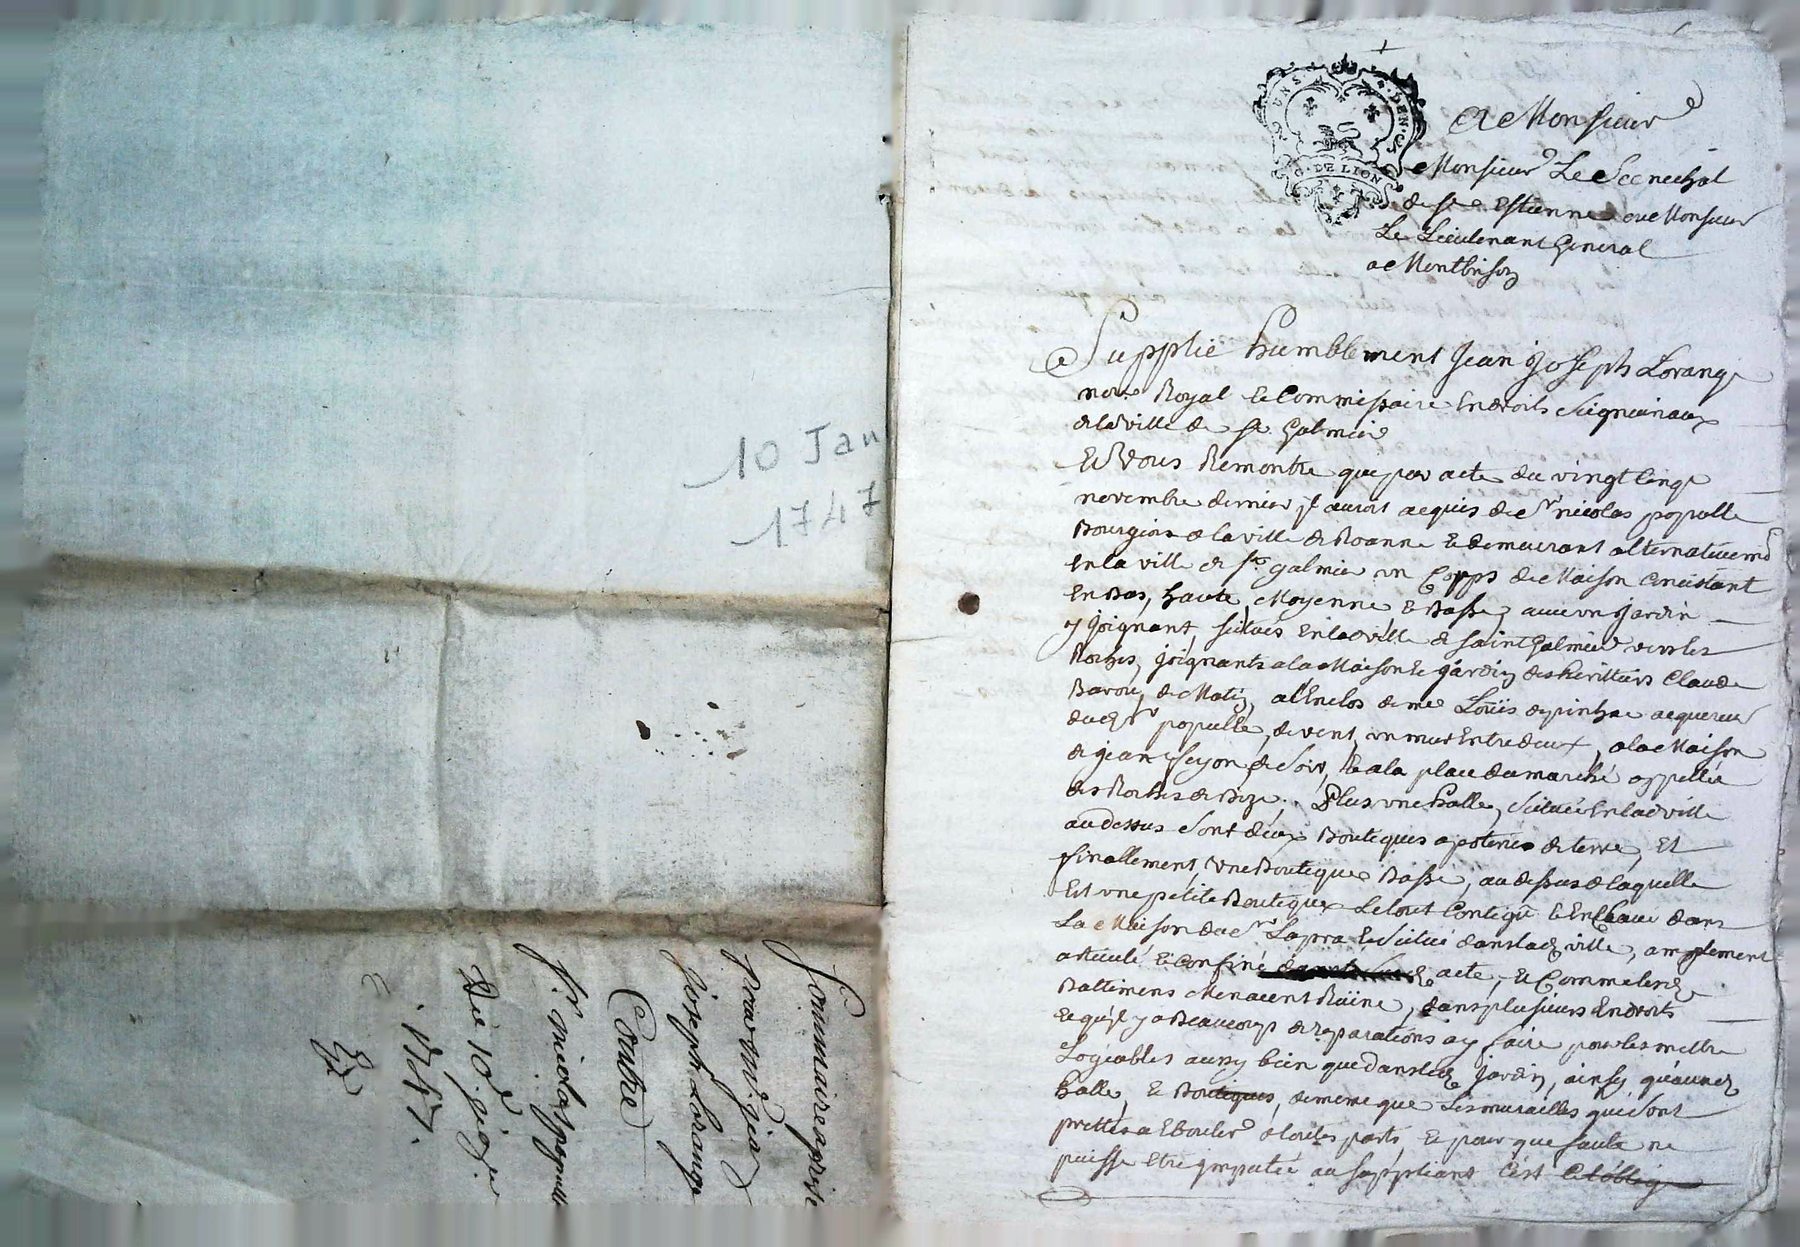 10 Jan
1747
Sommaire aprise
Pour Me jean
Joseph Lorange
Contre
Sr. nicolas populle
Du 10e
1747.
UN S. DEN.
G. DE LION
A Monsieur
Monsieur Le Senechal
de St Estienne ou Monsieur
Le Lieutenant General
a Montbrison
Supplie humblement Jean Joseph Lorange
nore. Royal et Commissaire En droits Seigneuriaux
de la ville de St. Galmier
Et Vous Remontre que par acte du vingt cinq
novembre dernier Jl auroit acquis de Sr nicolas populle
Bourgeois de la ville de Roanne et demeurant alternativemt
En la ville de St. galmier un Corps de Maison Concistant
En Bas, haute, Moyenne et Basse, avec un Jardin
y Joignant, scitués En lad ville de saint Galmier vers les
Roches, joignants a la Maison et jardin des herittiers Claude
de Matin, a l'Enclos de me Loüis depinhac acquereur
dud Sr populle, de vent, un mur Entre deux, a la Maison
de jean de Soir, Et a la place du marché appellée
des Roches de Bize. Plus une halle, scituée En lad ville
au dessus sont deux Boutiques a poteries de terre, Et
finallement, Une Boutique Basse, au dessus de laquelle
Est une petite Boutique Le tout Contigu Et Enclavé dans
La Maison du Sr Lapra Et scitué dans lad ville, amplement
articulé Et Confiné acte, Et Comme lesd
Battimens Menacent Ruine, dans plusieurs Endroits
Et qu'jl y a Beaucoup de reparations a y faire pour les mettre
Logeables aussy bien que dans led Jardin, ainsy qu'aud
halle, Et Boutiques, de meme que Les murailles qui sont
prettes a Ebouler de toutes parts, Et pour que faute ne
puisse Etre jmputée au suppliant C'est